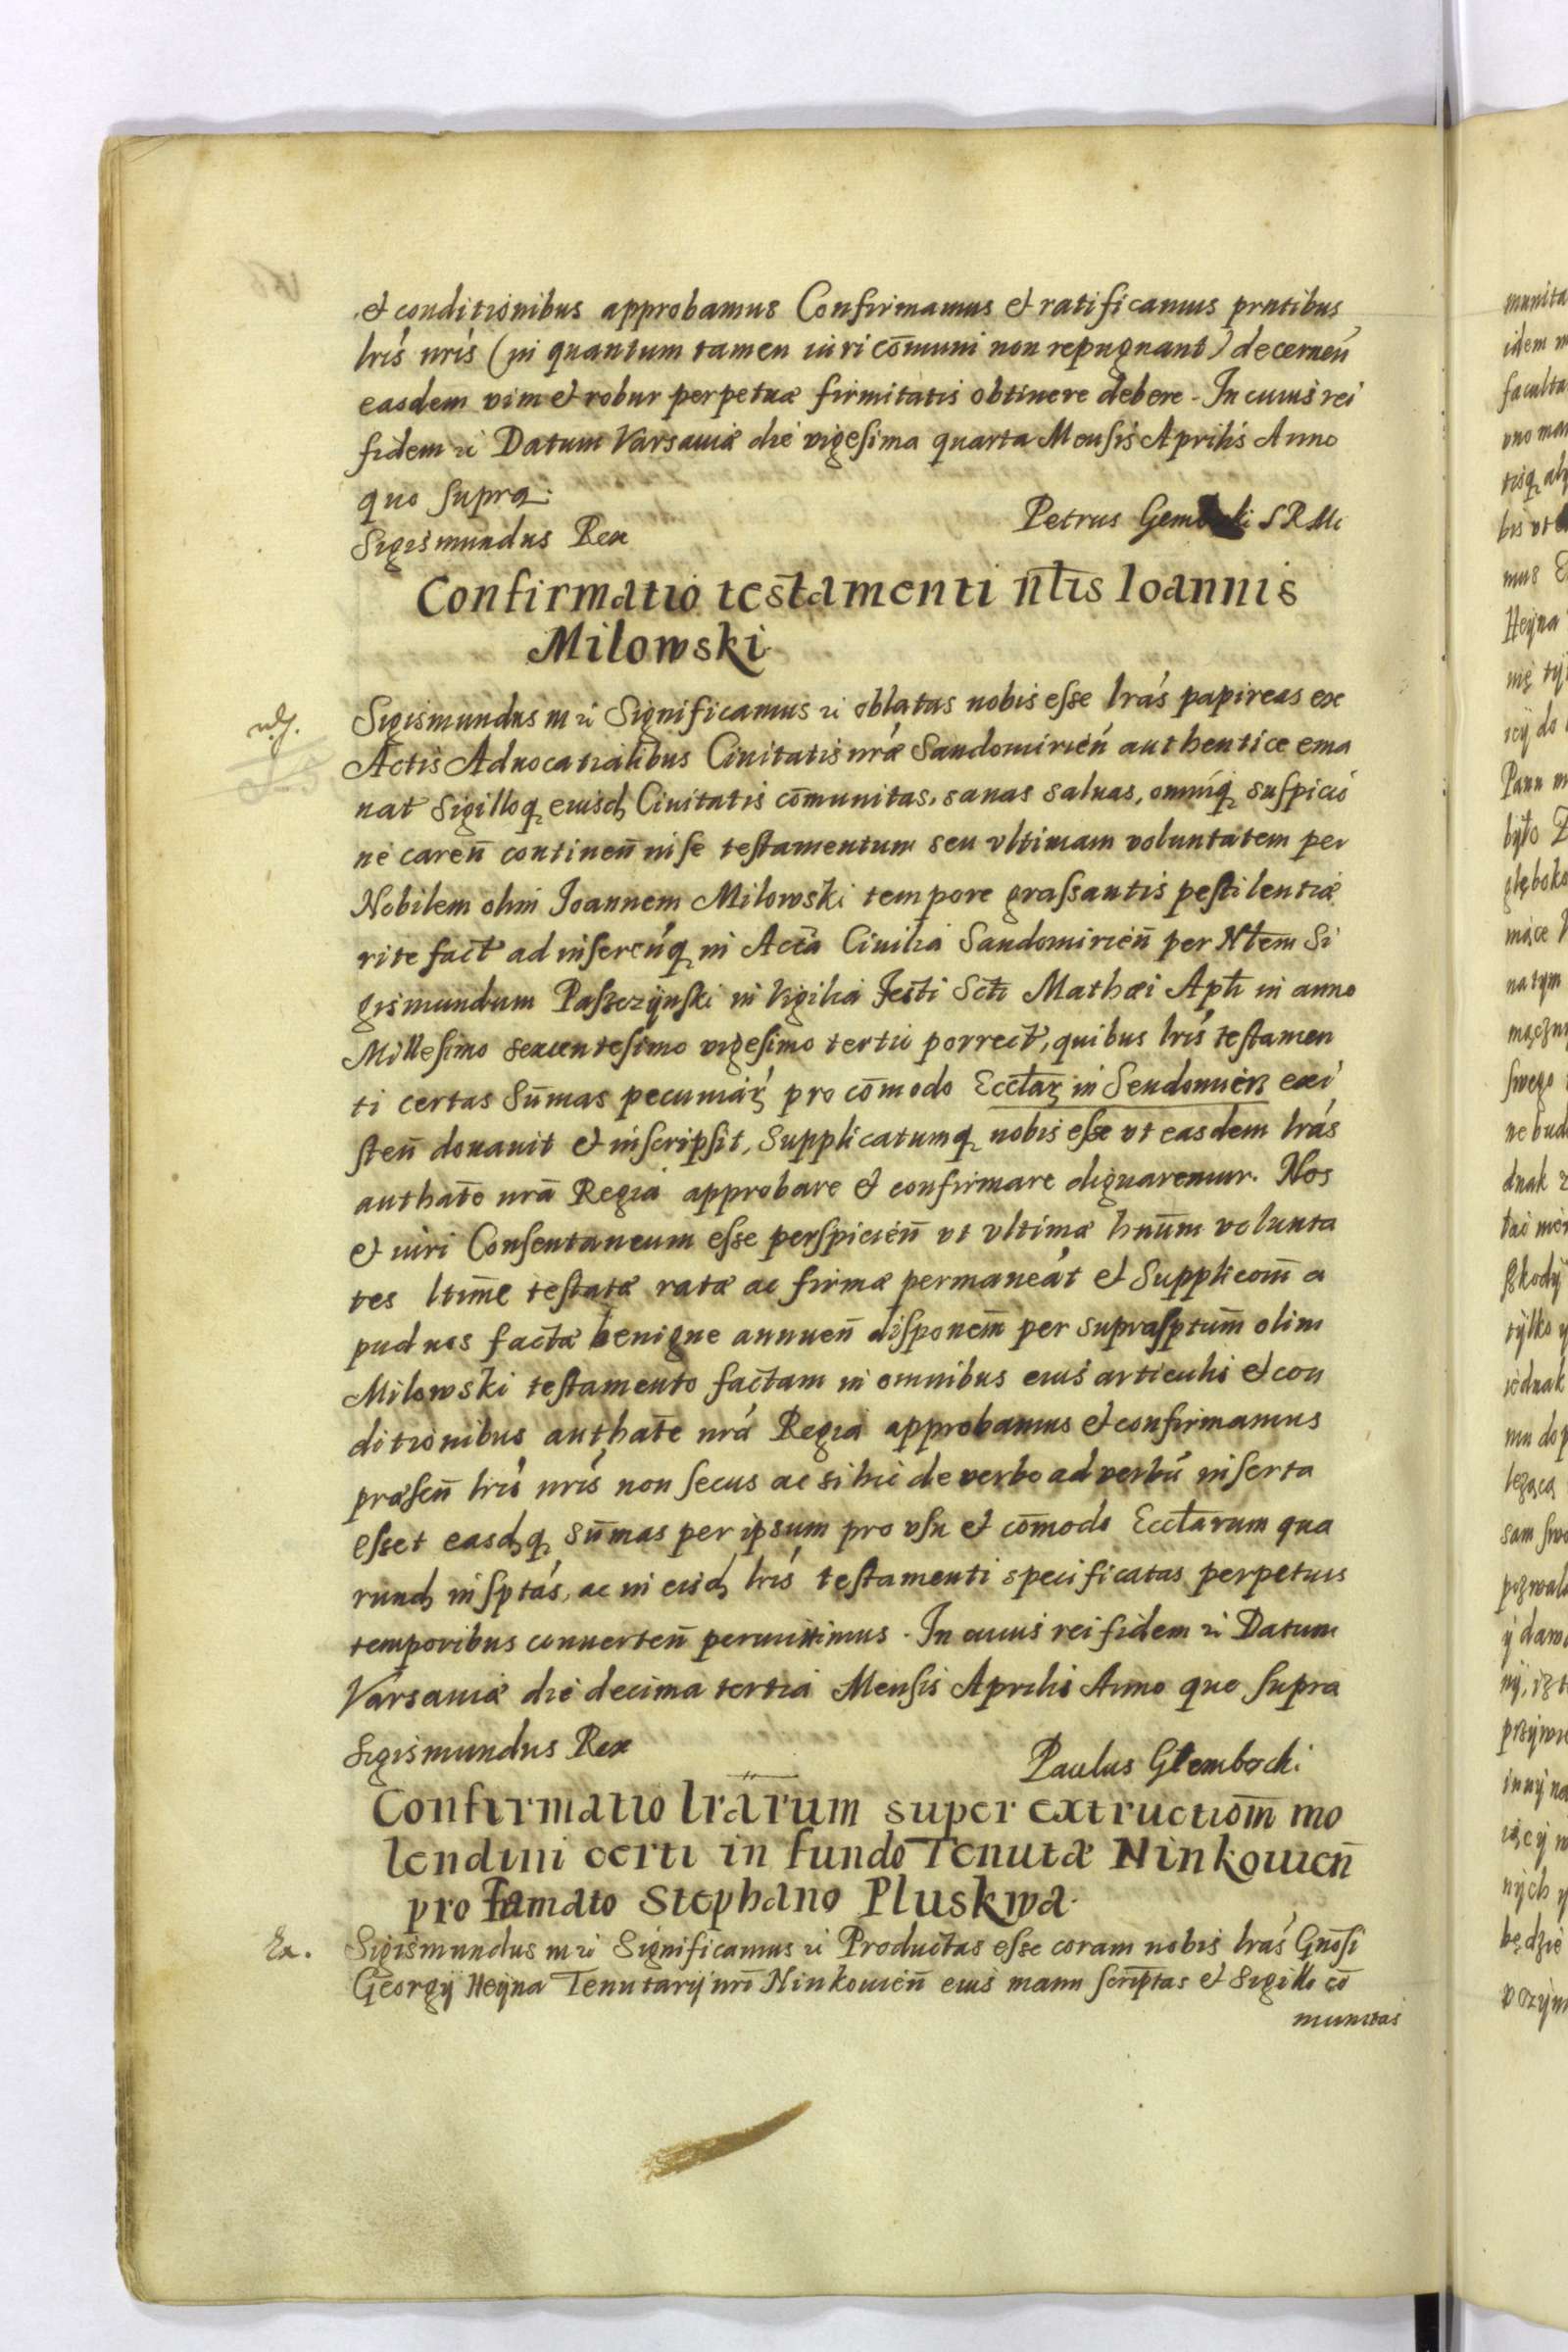 et conditionibus approbamus Confirmamus et ratificamus prntibus
lris nris (in quantum tamen iuri cōmuni non repugnant) decernen̄
easdem vim et robur perpetuæ firmitatis obtinere debere. In cuius rei
fidem etc Datum Varsaviæ die vigesima quarta Mensis Aprilis Anno
quo supra.
Sigismundus Rex
Petrus Gembicki SRM
Confirmatio testamenti nt̄is Ioannis
Milowski
Sigismundus III etc Significamus etc oblatas nobis esse lrás papireas ex
Actis Advocatialibus Civitatis nrǽ Sandomirień authentice ema
nat Sigilloq eiusd Civitatis cōmunitas, sanas salvas, omniq suspicio
ne caren̄ continen̄ in se testamentum seu vltimam voluntatem per
Nobilem olim Joannem Milowski tempore grassantis pestilentiæ
rite fact ad inserenq in Acta Civilia Sandomirień per Nt̄em Si
gismundum Paszczÿnski in Vigilia Festi Scti Mathæi Apli in anno
Millesimo sexcentesimo vigesimo tertio porrect, quibus lris testamen
ti certas Sum̄as pecuniar pro cōmodo Ecclar in Sendomien exi
sten̄ donavit et inscripsit, Supplicatumq nobis esse vt easdem lrás
authate nrā Regia approbare et confirmare dignaremur. Nos
et iuri Consentaneum esse perspicień vt vltimæ hnum volunta
tes ltime testatæ ratæ ac firmæ permaneát et Supplicōm a
pud nos factæ benigne annuen̄ disponem per suprasptum olim
Milowski testamento factam in omnibus eius articulis et con
ditionibus authate nrá Regia approbamus et confirmamus
præsen̄ lris nris non secus ac si hic de verbo ad verbú inserta
esset easdq sum̄as per ipsum pro vsu et cōmodo Ecclarum qua
rund insptás, ac in eisd lris testamenti specificatas perpetuis
temporibus converten̄ permittimus. In cuius rei fidem etc Datum
Varsaviæ die decima tertia Mensis Aprilis Anno quo supra
Sigismundus Rex
Paulus Glembocki
Confirmatio lrārum super extructiom̄ mo
lendini certi in fundo Tenutæ Ninkouien̄
pro Famato Stephano Pluskwa.
Ex. Sigismundus III etc Significamus etc Productas esse coram nobis lrás Gnosi
Georgÿ Heÿna Tenutarÿ nrī Ninkouień eius manu scriptas et Sigillo cō
munitas